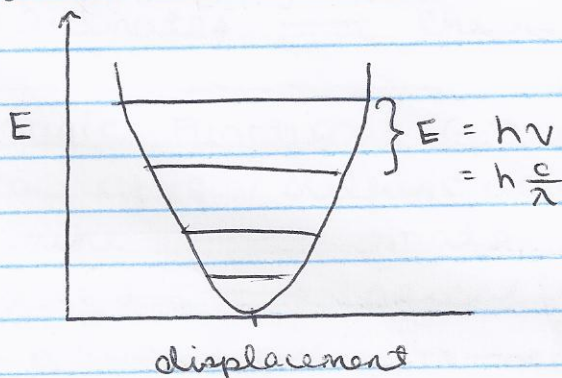 E
E = hν
= h c/λ
displacement